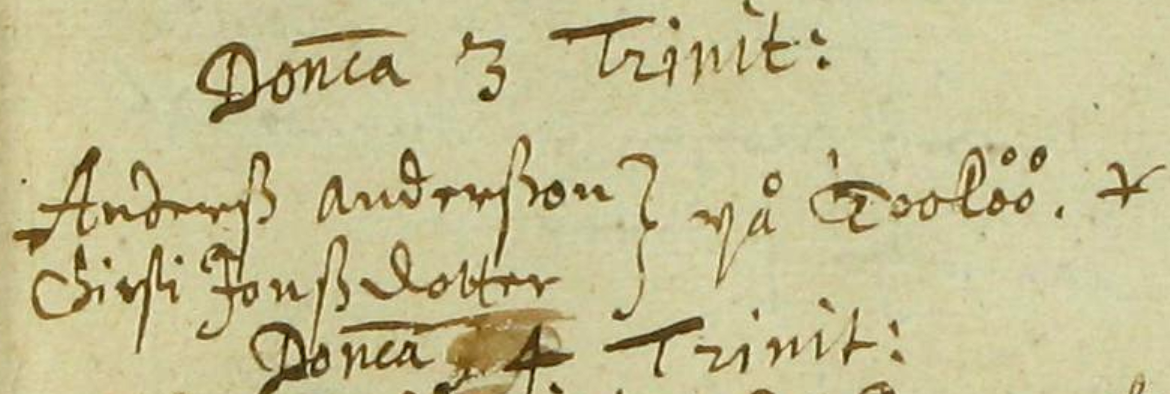 Donca 3 Trinit:
Anderß Anderßon } på Tooløø. +
Girsti Jonßdotter
Donca 4 Trinit: